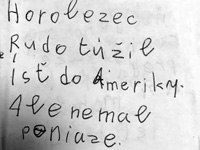 Horolezec
Rudo túžil
Ísť do Ameriky.
Ale nemal
poniaze.